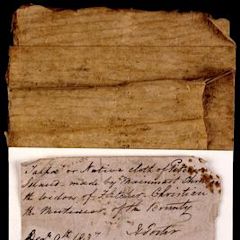 Tappa or Native cloth of Pitcairn
Island - made by
the widow of Fletcher Christian
the Mutineer of the Bounty
Foster
Decr 9th 1837